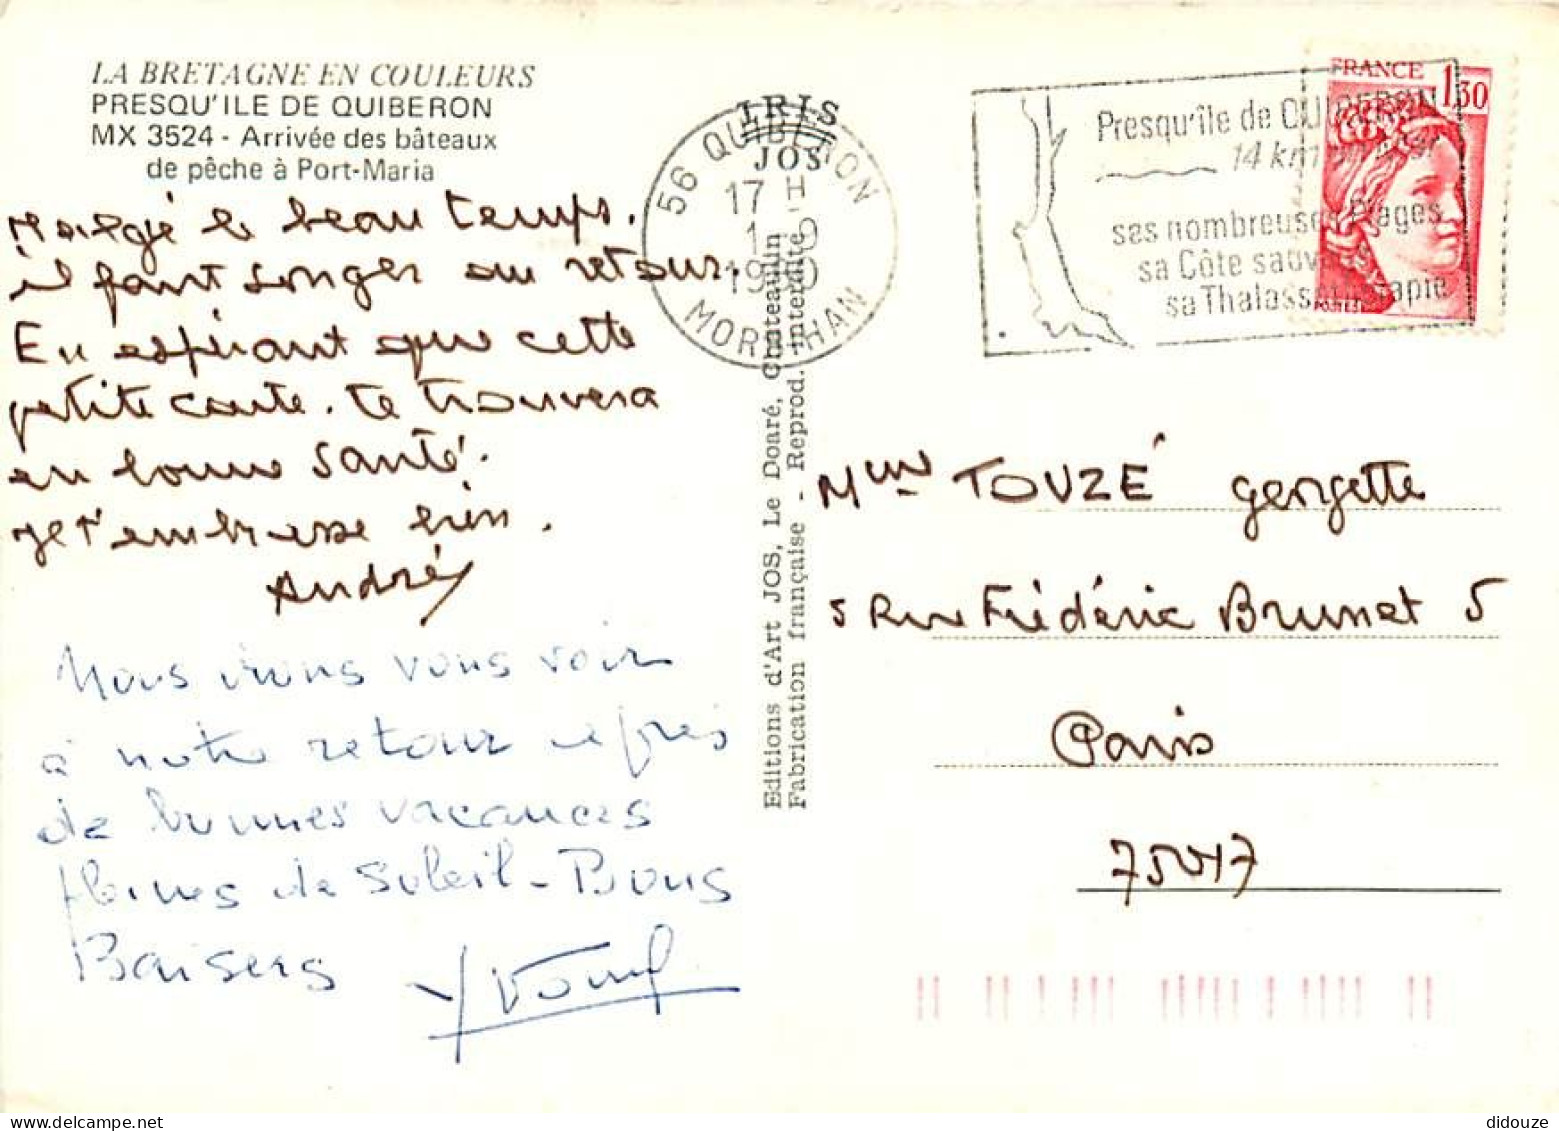 LA BRETAGNE EN COULEURS
PRESQU'ILE DE QUIBERON
MX 3524 - Arrivée des bâteaux
de pêche à Port-Maria
Malgé le beau temps.
il faut songer au retour.
En espérant que cette
petite carte. te trouvera
en bonne santé.
Je t'embrasse bien.
André
Nous irons vous voir
à notre retour après
de bonnes vacances
pleines de soleil - Bons
Baisers Yvonne
IRIS
JOS
56 QUIBERON
17 H
1-9
1980
MORBIHAN
Editions d'Art JOS, Le Doaré, Chateaulin
Fabrication française - Reprod. interdite
Presqu'île de QUIBERON
14 km
ses nombreuses Plages
sa Côte sauvage
sa Thalassothérapie
FRANCE 1,30
Mme TOUZÉ Georgette
5 Rue Frédéric Brunet 5
Paris
75017
didouze